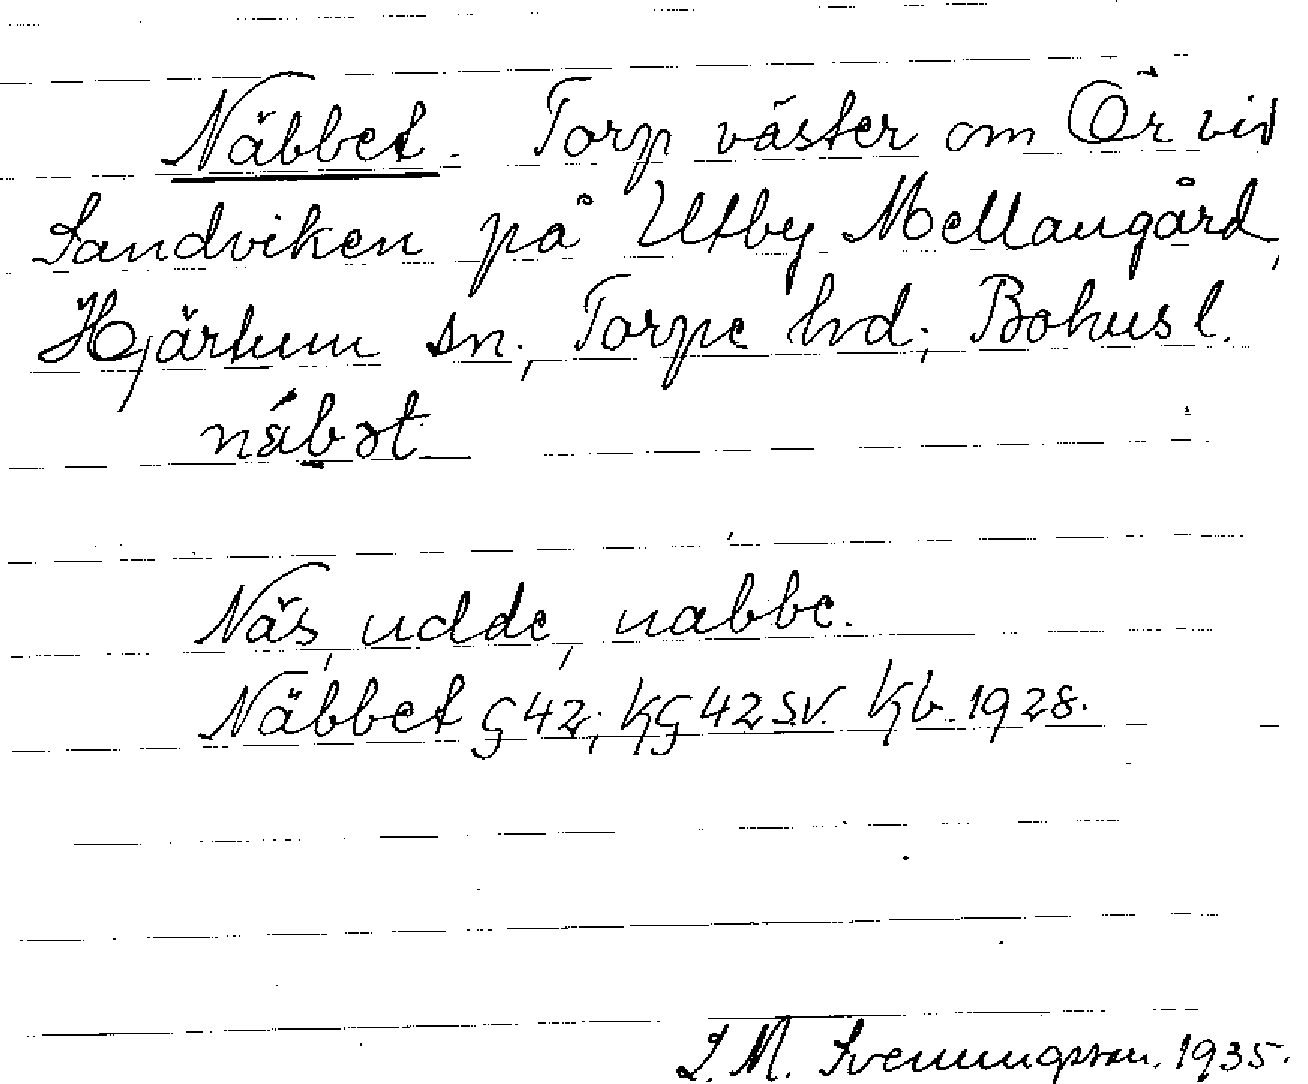 Näbbet. Torp väster om Ör vid
Sandviken på Utby Mellangård,
Hjärtum sn., Torpe hd; Bohusl.
näbət
Näs, udde, nabbe.
Näbbet G 42; KG 42 SV. Kb. 1928.
J. M. Svenungsson. 1935.